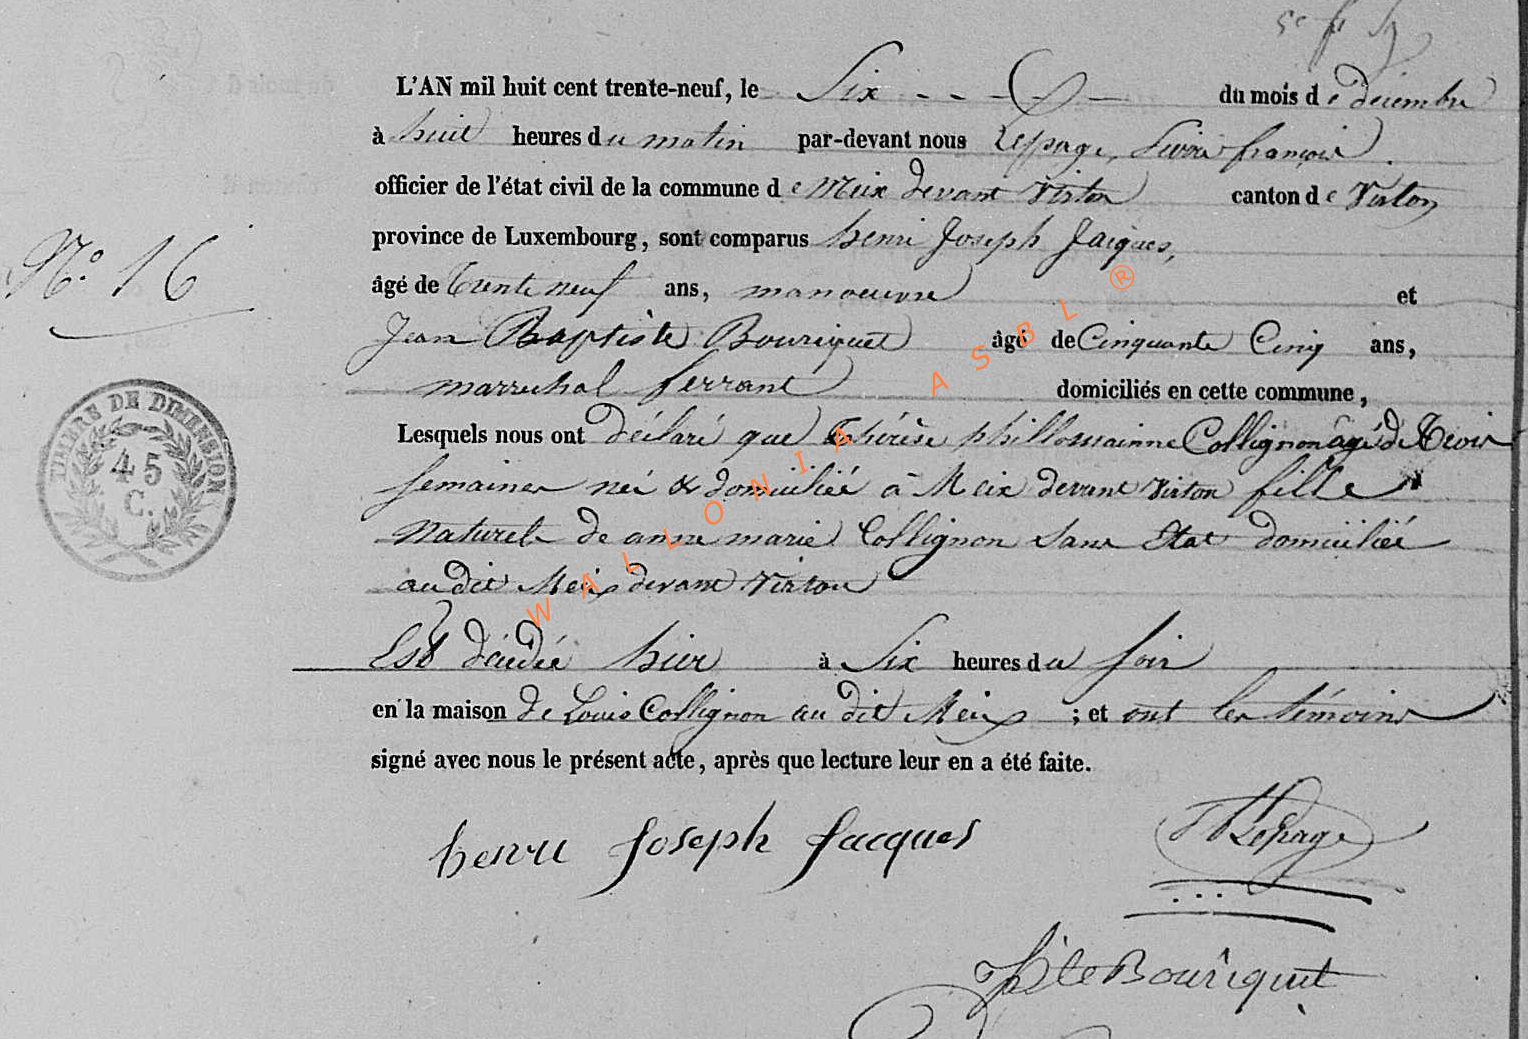 L'AN mil huit cent trente-neuf, le Six du mois de décembre
à huit heures du matin par-devant nous Lepage, françois
officier de l'état civil de la commune de Meix devant Virton canton de Virton
N.° 16
province de Luxembourg, sont comparus henri Joseph Jacques,
âgé de trente neuf ans, manoeuvre et
Jean Baptiste Bouriquet âgé de Cinquante Cinq ans,
marrechal ferrant domiciliés en cette commune,
TIMBRE DE DIMENSION
45
C.
Lesquels nous ont déclaré que thérèse phillomainne Collignon âgé de trois
semaines né & domiciliée à Meix devant virton fille
Naturele de anne marie Collignon sans Etat domiciliée
au dit Meix devant virton
Est décédée hier à Six heures du soir
en la maison de Louis Collignon au dit Meix ; et ont les témoins
signé avec nous le présent acte, après que lecture leur en a été faite.
henri Joseph Jacques
Lepage
Bouriquet
WALLONIA ASBL ®